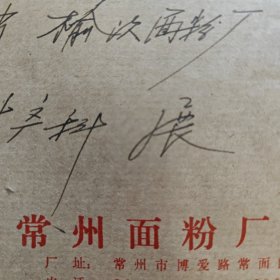 榆次面粉厂
生产科 展
常州面粉厂
厂址：常州市博爱路常面